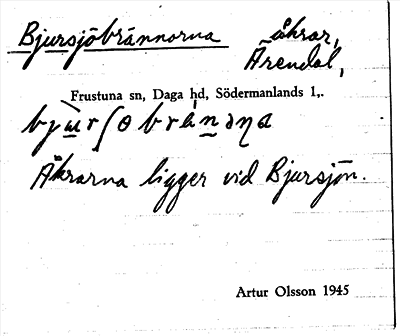 Bjursjöbrännorna åkrar,
Ärendal,
Frustuna sn, Daga hd, Södermanlands l,.
Åkrarna ligger vid Bjursjön.
Artur Olsson 1945